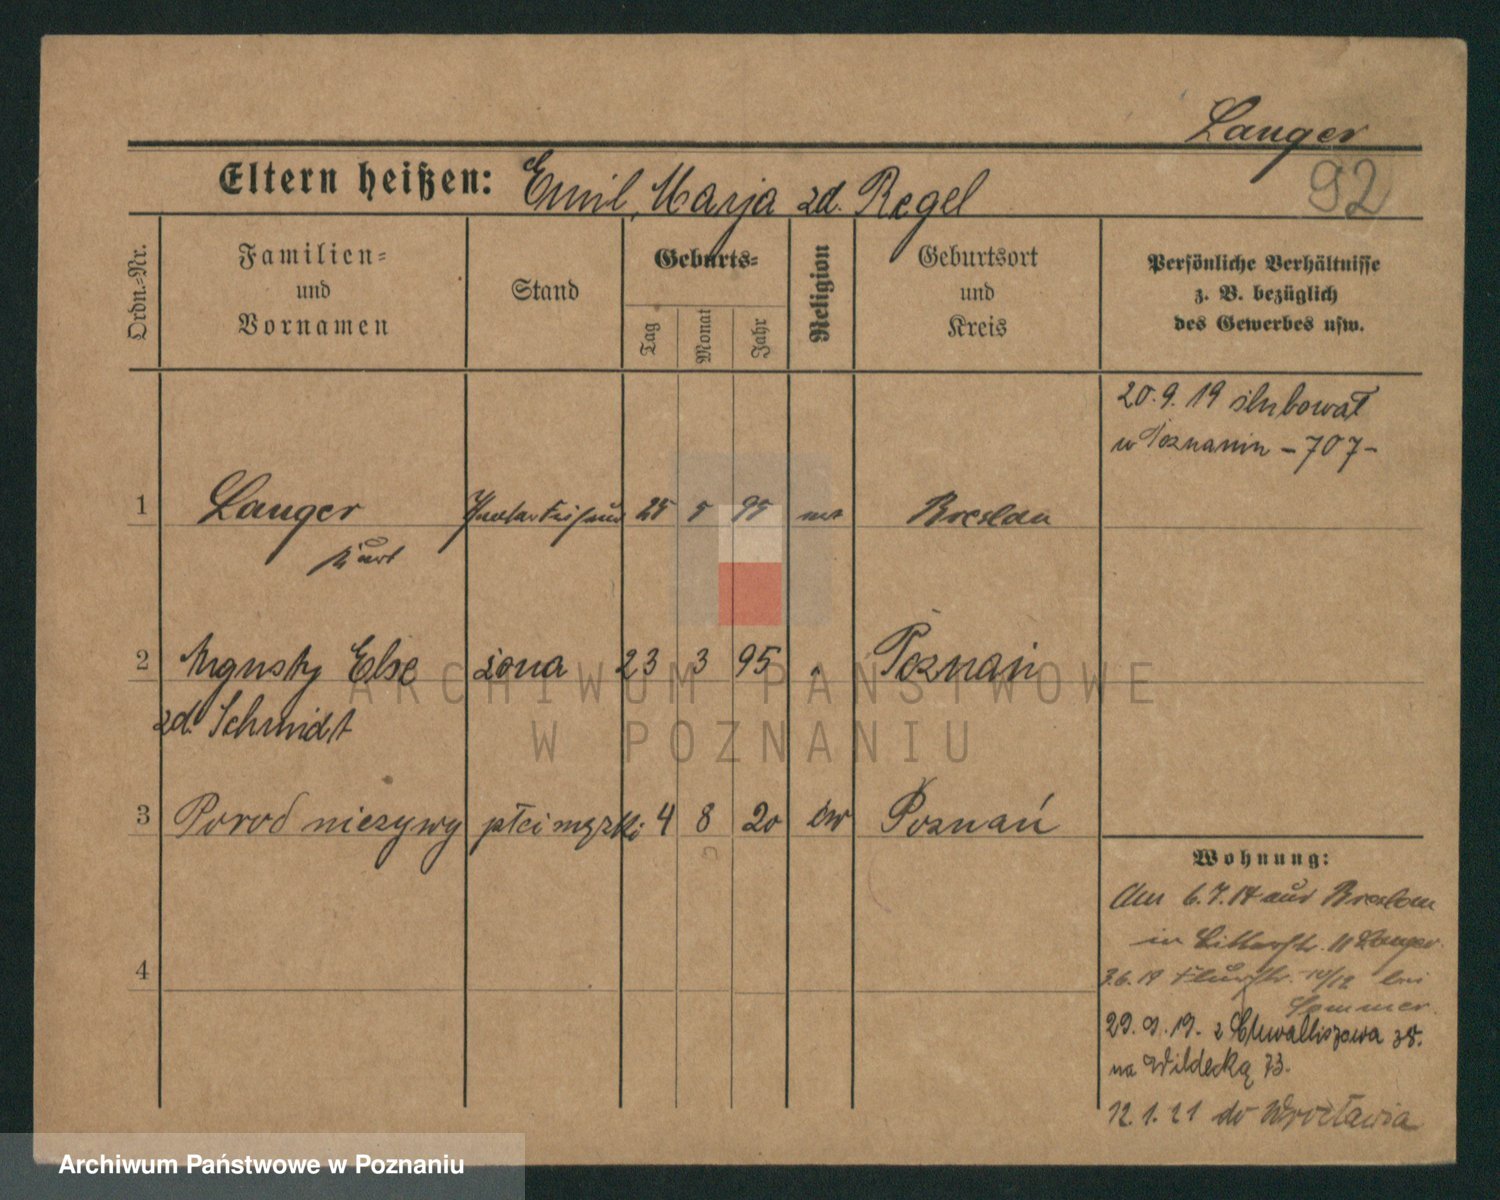 Langer
92
Eltern heißen: Emil, Marja zd. Regel
Ordn.-Nr.
Familien-
und
Vornamen
Stand
Geburts-
Tag
Monat
Jahr
Religion
Geburtsort
und
Kreis
Persönliche Verhältnisse
z. B. bezüglich
des Gewerbes usw.
20.9.19 ślubował
w Poznaniu -707-
1 Langer 25 5 95 Breslau
Kurt
2 Else żona 23 3 95 " Poznań
zd. Schmidt
3 Porod nieżywy płci męzki 4 8 20 ew Poznań
4
Wohnung:
6.7.17 aus Breslau
in 11 Langer
3.6.19 10/12 bei
Sommer
29.9.19. z Chwaliszewa 38.
na Wildecką 73.
12.1.21 do Wrocławia
ARCHIWUM PAŃSTWOWE
W POZNANIU
Archiwum Państwowe w Poznaniu